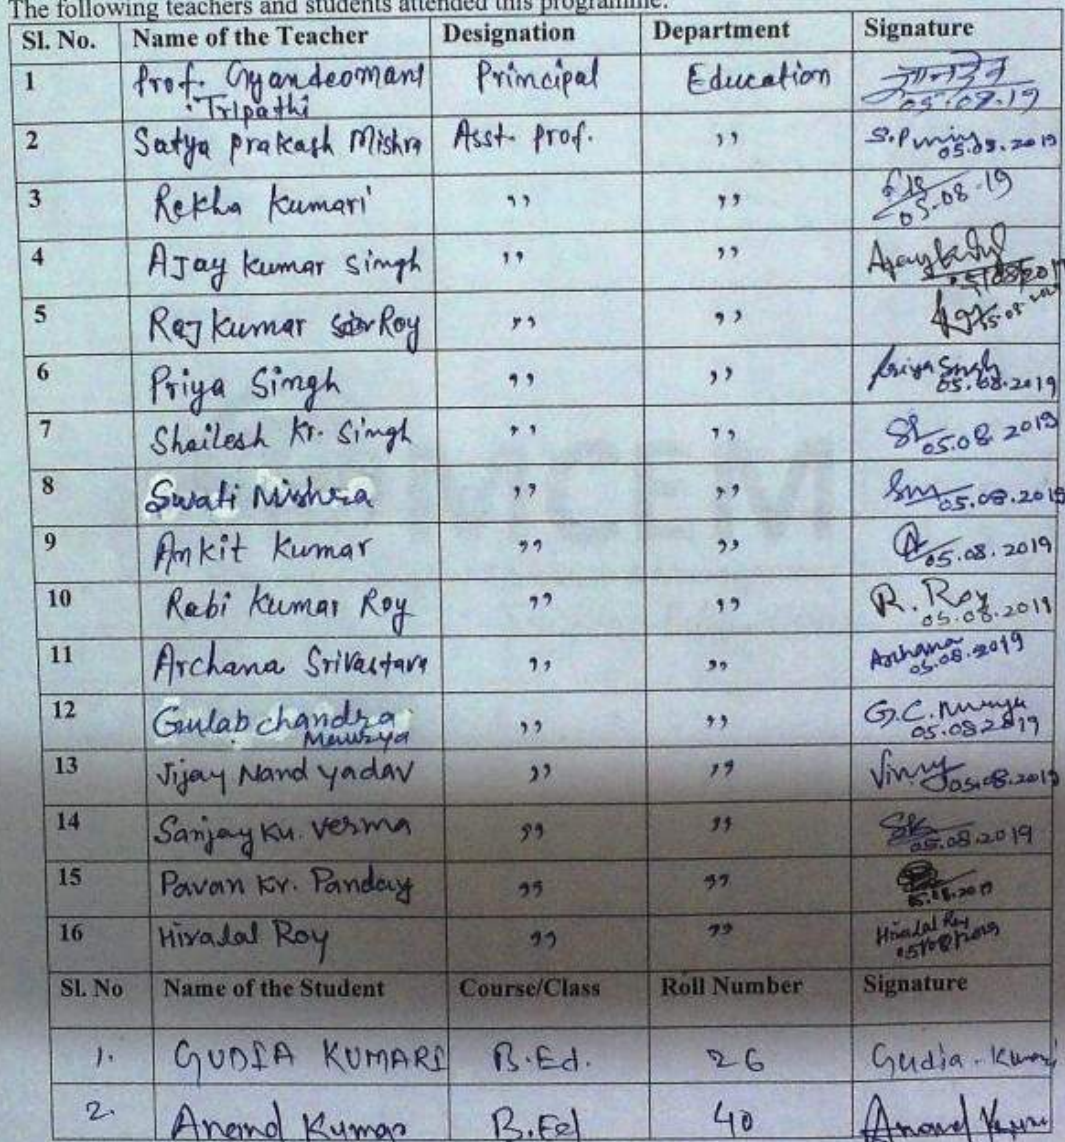 The following teachers and students attended this programme.
Sl. No. Name of the Teacher Designation Department Signature
1 Prof. Gyandeomani Principal Education
Tripathi 05.09.19
2 Satya prakash Mishra Asst. prof. ,, S.P
05.08.2019
3 Rekha Kumari ,, ,,
05-08-19
4 AJay kumar singh ,, ,,
5 Raj kumar Roy ,, ,,
6 Priya Singh ,, ,, Priya Singh
05.08.2019
7 Shailesh Kr. Singh ,, ,, 05.08.2019
8 Swati Mishra ,, ,, Sm 05.08.2019
9 Ankit Kumar ,, ,, 05.08.2019
10 Rabi Kumar Roy ,, ,, R. Roy
05.08.2019
11 Archana Srivastava ,, ,, Archana
05.08.2019
12 Gulab chandra ,, ,, G.C. Maurya
Maurya 05.08.2019
13 Vijay Nand yadav ,, ,, 05.08.2019
14 Sanjay Ku. Verma ,, ,, SK
05.08.2019
15 Pavan Kr. Panday ,, ,,
16 Hiralal Roy ,, ,, Hiralal Roy
05/08/2019
Sl. No Name of the Student Course/Class Roll Number Signature
1. GUDIA KUMARI B.Ed. 26 Gudia - Kumari
2. Anand Kumar B.Ed 40 Anand Kumar